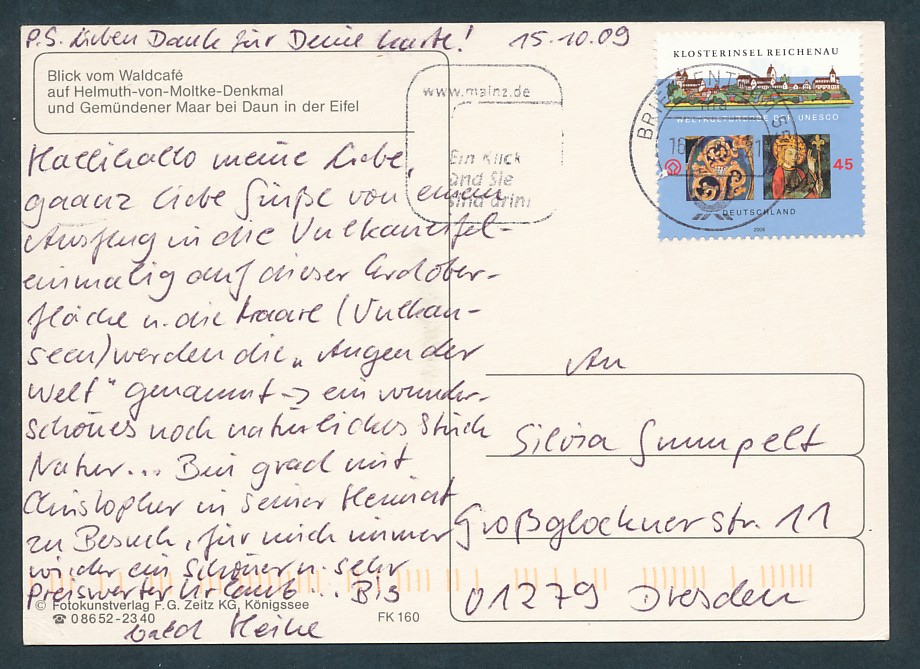 P.S. Lieben Dank für Deine Karte! 15.10.09
Blick vom Waldcafé
auf Helmuth-von-Moltke-Denkmal
und Gemündener Maar bei Daun in der Eifel
www.mainz.de
Ein Klick
und Sie
sind drin!
BRIEFZENTRUM
KLOSTERINSEL REICHENAU
WELTKULTURERBE DER UNESCO
45
DEUTSCHLAND
2008
Hallihallo meine Liebe,
gaanz liebe Grüße von einem
Ausflug in die Vulkaneifel -
einmalig auf dieser Erdober-
fläche u. die Maare (Vulkan-
seen) werden die „Augen der
Welt" genannt -> ein wunder-
schönes noch natürliches Stück
Natur... Bin grad mit
Christopher in seiner Heimat
zu Besuch, für mich immer
wieder ein schöner u. sehr
preiswerter Urlaub... Bis
bald Heike
An
Silvia Gumpelt
Großglocknerstr. 11
01279 Dresden
© Fotokunstverlag F. G. Zeitz KG, Königssee
☎ 0 86 52 - 23 40
FK 160